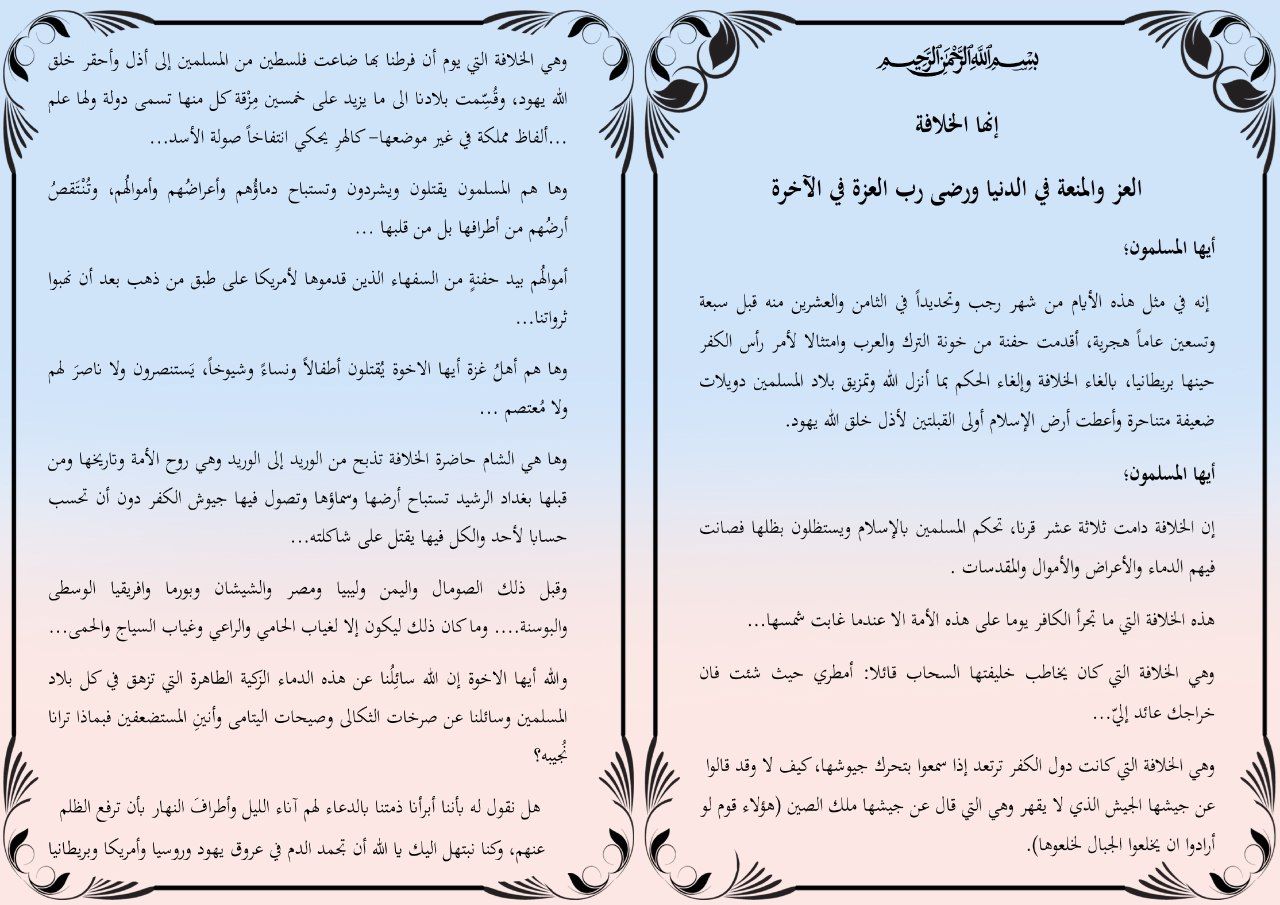 بسم الله الرحمن الرحيم
إنها الخلافة
العز والمنعة في الدنيا ورضى رب العزة في الآخرة
أيها المسلمون؛
إنه في مثل هذه الأيام من شهر رجب وتحديداً في الثامن والعشرين منه قبل سبعة
وتسعين عاماً هجرية، أقدمت حفنة من خونة الترك والعرب وامتثالا لأمر رأس الكفر
حينها بريطانيا، بالغاء الخلافة وإلغاء الحكم بما أنزل الله وتمزيق بلاد المسلمين دويلات
ضعيفة متناحرة وأعطت أرض الإسلام أولى القبلتين لأذل خلق الله يهود.
أيها المسلمون؛
إن الخلافة دامت ثلاثة عشر قرنا، تحكم المسلمين بالإسلام ويستظلون بظلها فصانت
فيهم الدماء والأعراض والأموال والمقدسات .
هذه الخلافة التي ما تجرأ الكافر يوما على هذه الأمة الا عندما غابت شمسها...
وهي الخلافة التي كان يخاطب خليفتها السحاب قائلا: أمطري حيث شئت فان
خراجك عائد إليّ...
وهي الخلافة التي كانت دول الكفر ترتعد إذا سمعوا بتحرك جيوشها، كيف لا وقد قالوا
عن جيشها الجيش الذي لا يقهر وهي التي قال عن جيشها ملك الصين (هؤلاء قوم لو
أرادوا ان يخلعوا الجبال لخلعوها).
وهي الخلافة التي يوم أن فرطنا بها ضاعت فلسطين من المسلمين إلى أذل وأحقر خلق
الله يهود، وقُسِّمت بلادنا الى ما يزيد على خمسين مِزْقة كل منها تسمى دولة ولها علم
...ألفاظ مملكة في غير موضعها- كالهرِ يحكي انتفاخاً صولة الأسد...
وها هم المسلمون يقتلون ويشردون وتستباح دماؤُهم وأعراضُهم وأموالهُم، وتُنْتَقصُ
أرضُهم من أطرافها بل من قلبها ...
أموالهُم بيد حفنةٍ من السفهاء الذين قدموها لأمريكا على طبق من ذهب بعد أن نهبوا
ثرواتنا...
وها هم أهلُ غزة أيها الاخوة يُقتلون أطفالاً ونساءً وشيوخاً، يَستنصرون ولا ناصرَ لهم
ولا مُعتصم ...
وها هي الشام حاضرة الخلافة تذبح من الوريد إلى الوريد وهي روح الأمة وتاريخها ومن
قبلها بغداد الرشيد تستباح أرضها وسماؤها وتصول فيها جيوش الكفر دون أن تحسب
حسابا لأحد والكل فيها يقتل على شاكلته...
وقبل ذلك الصومال واليمن وليبيا ومصر والشيشان وبورما وافريقيا الوسطى
والبوسنة.... وما كان ذلك ليكون إلا لغياب الحامي والراعي وغياب السياج والحمى...
والله أيها الاخوة إن الله سائِلُنا عن هذه الدماء الزكية الطاهرة التي تزهق في كل بلاد
المسلمين وسائلنا عن صرخات الثكالى وصيحات اليتامى وأنينِ المستضعفين فبماذا ترانا
نُجيبه؟
هل نقول له بأننا أبرأنا ذمتنا بالدعاء لهم آناء الليل وأطرافَ النهار بأن ترفع الظلم
عنهم، وكنا نبتهل اليك يا الله أن تجمد الدم في عروق يهود وروسيا وأمريكا وبريطانيا